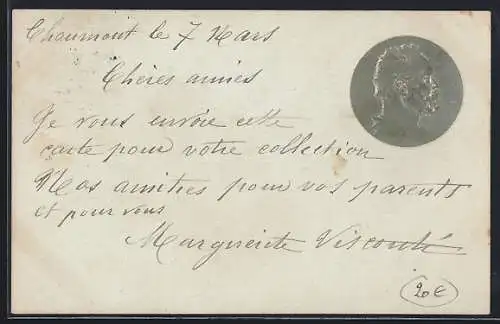 Chaumont le 7 Mars
Chères amies
Je vous envoie cette
carte pour votre collection
Nos amitiés pour vos parents
et pour vous
Marguerite Visconti
20€